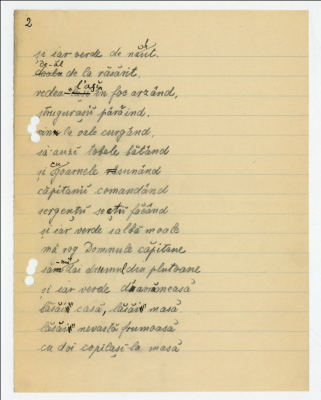 2
și iar verde de năut.
de-al de la răsărit.
vedea Iași în foc arzând,
strugurașii pârâind,
vin le vale curgând,
să auzi tobele bătând
și cu goarnele sunând
căpitanii comandând
sergenții făcând
și iar verde salbă moale
mă rog Domnule căpitane
să-mi dai drumul din plutoane
și iar verde
lăsăi casă, lăsăi masă
lăsăi nevastă frumoasă
cu doi copilași la masă